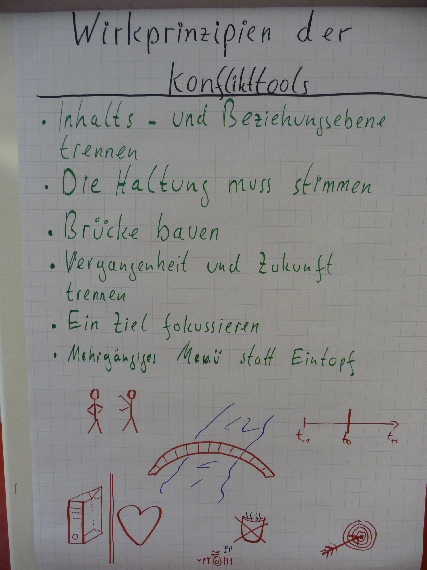 Wirkprinzipien der
Konflikttools
• Inhalts - und Beziehungsebene
trennen
• Die Haltung muss stimmen
• Brücke bauen
• Vergangenheit und Zukunft
trennen
• Ein Ziel fokussieren
• Mehrgängiges Menü statt Eintopf